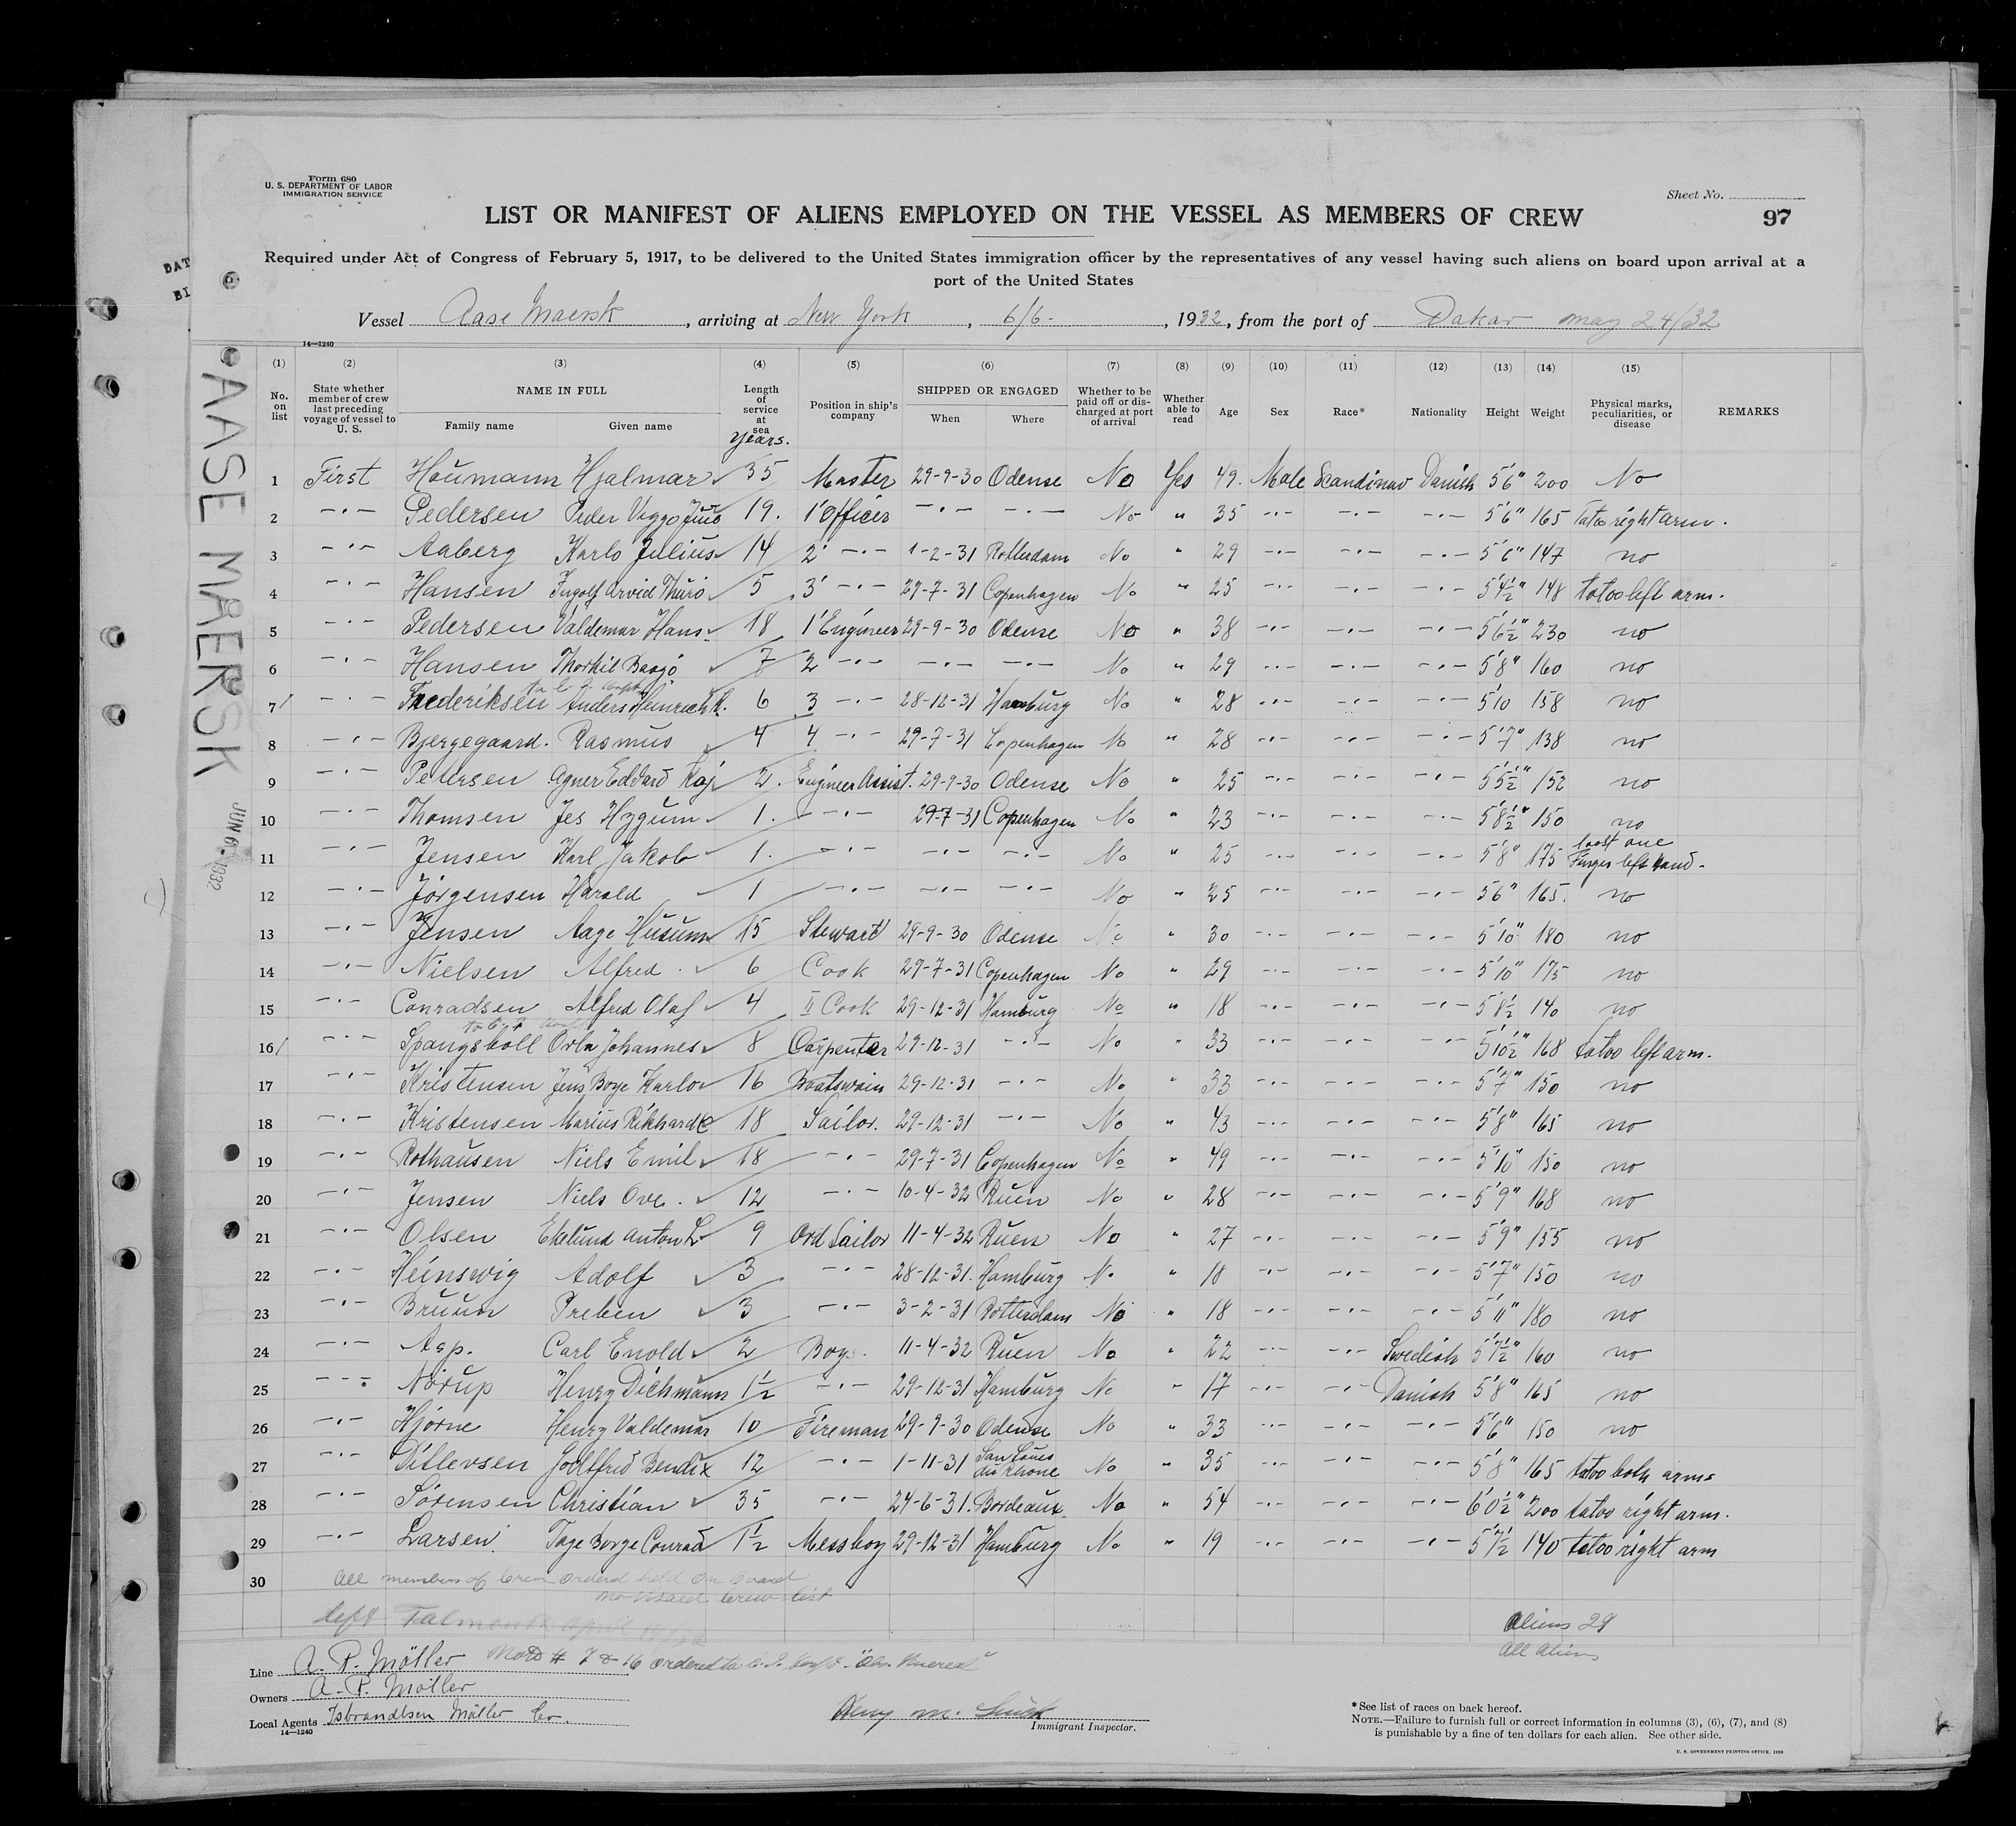 Form 680
U. S. DEPARTMENT OF LABOR
IMMIGRATION SERVICE
Sheet No.
97
LIST OR MANIFEST OF ALIENS EMPLOYED ON THE VESSEL AS MEMBERS OF CREW
Required under Act of Congress of February 5, 1917, to be delivered to the United States immigration officer by the representatives of any vessel having such aliens on board upon arrival at a
port of the United States
DAT
BI
Vessel Aase Maersk, arriving at New York, 6/6-, 1932, from the port of Dakar may 24/32
14—1240
AASE MAERSK
JUN 6 - 1932
(1) (2) (3) (4) (5) (6) (7) (8) (9) (10) (11) (12) (13) (14) (15)
No. on list
State whether member of crew last preceding voyage of vessel to U. S.
NAME IN FULL
Family name Given name
Length of service at sea
Years.
Position in ship's company
SHIPPED OR ENGAGED
When Where
Whether to be paid off or discharged at port of arrival
Whether able to read
Age Sex Race* Nationality Height Weight
Physical marks, peculiarities, or disease
REMARKS
1 First Houmann Hjalmar 35 Master 29-9-30 Odense No Yes 49. Male Scandinav Danish 5'6" 200 No
2 -·- Pedersen Peder Viggo Juul 19. 1'Officer -·- -·- No " 35 -·- -·- -·- 5'6" 165 Tatoo right arm.
3 -·- Aaberg Karlo Julius 14 2' -·- 1-2-31 Rotterdam No " 29 -·- -·- -·- 5'6" 147 no
4 -·- Hansen Ingolf Arvid Thurø 5 3' -·- 29-7-31 Copenhagen No " 25 -·- -·- -·- 5'4½" 148 tatoo left arm.
5 -·- Pedersen Valdemar Hans 18 1'Engineer 29-9-30 Odense No " 38 -·- -·- -·- 5'6½" 230 no
6 -·- Hansen Thorkil Baagö 7 2 -·- -·- -·- No " 29 -·- -·- -·- 5'8" 160 no
7/ -·- Frederiksen Anders Heinrich K. 6 3 -·- 28-12-31 Hamburg No " 28 -·- -·- -·- 5'10 158 no
8 -·- Bjergegaard. Rasmus 4 4 -·- 29-7-31 Copenhagen No " 28 -·- -·- -·- 5'7" 138 no
9 -·- Petersen Agner Eddard Kaj 2. Engineer Assist. 29-9-30 Odense No " 25 -·- -·- -·- 5'5½" 152 no
10 -·- Thomsen Jes Hygum 1. -·- 29-7-31 Copenhagen No " 23 -·- -·- -·- 5'8½" 150 no
11 -·- Jensen Karl Jakob 1. -·- -·- -·- No " 25 -·- -·- -·- 5'8" 175 loost one Finger left hand.
12 -·- Jørgensen Harald 1 -·- -·- -·- No " 25 -·- -·- -·- 5'6" 165. no
13 -·- Jensen Aage Husum 15 Stewart 29-9-30 Odense No " 30 -·- -·- -·- 5'10" 180 no
14 -·- Nielsen Alfred 6 Cook 29-7-31 Copenhagen No " 29 -·- -·- -·- 5'10" 175 no
15 -·- Conradsen Alfred Olaf 4 II Cook 29-12-31 Hamburg No " 18 -·- -·- -·- 5'8½ 140 no
16/ -·- Spangsboll Orla Johannes 8 Carpenter 29-12-31 -·- No " 33 -·- -·- -·- 5'10½" 168 tatoo left arm.
17 -·- Kristensen Jens Boye Karlo 16 Boatswain 29-12-31 -·- No " 33 -·- -·- -·- 5'7" 150 no
18 -·- Kristensen Marius Rikhardt 18 Sailor. 29-12-31 -·- No " 43 -·- -·- -·- 5'8" 165 no
19 -·- Rothausen Niels Emil 18 -·- 29-7-31 Copenhagen No " 49 -·- -·- -·- 5'10" 150 no
20 -·- Jensen Niels Ove. 12 -·- 10-4-32 Ruen No " 28 -·- -·- -·- 5'9" 168 no
21 -·- Olsen Ekelund Anton L 9 Ord Sailor 11-4-32 Ruen No " 27 -·- -·- -·- 5'9" 155 no
22 -·- Heinswig Adolf 3 -·- 28-12-31. Hamburg No " 18 -·- -·- -·- 5'7" 150 no
23 -·- Bruun Preben 3 -·- 3-2-31 Rotterdam No " 18 -·- -·- -·- 5'11" 180 no
24 -·- Asp. Carl Enold 2 Boy. 11-4-32 Ruen No " 22 -·- -·- Swedish 5'7½" 160 no
25 -·- Nörup Henry Dichmann 1½ -·- 29-12-31 Hamburg No " 17 -·- -·- Danish 5'8" 165 no
26 -·- Hjörne Henry Valdemar 10 Fireman 29-9-30 Odense No " 33 -·- -·- -·- 5'6" 150 no
27 -·- Ditlevsen Godtfred Bendix 12 -·- 1-11-31 San Louis du Rhone No " 35 -·- -·- -·- 5'8" 165 tatoo both arms
28 -·- Sörensen Christian 35 -·- 24-6-31. Bordeaux No " 54 -·- -·- -·- 6'0½" 200 tatoo right arm.
29 -·- Larsen Tage Börge Conrad 1½ Messboy 29-12-31 Hamburg No " 19 -·- -·- -·- 5'7½ 140 tatoo right arm
30
All members of Crew ordered held on board
no visaed Crew list
left Falmouth April
Aliens 29
All Aliens
Line A. P. Möller
7 & 16 ordered to
Owners A. P. Möller
Local Agents Isbrandtsen Möller Co.
14—1240
Henry M.
Immigrant Inspector.
*See list of races on back hereof.
NOTE.—Failure to furnish full or correct information in columns (3), (6), (7), and (8)
is punishable by a fine of ten dollars for each alien. See other side.
U. S. GOVERNMENT PRINTING OFFICE, 1929